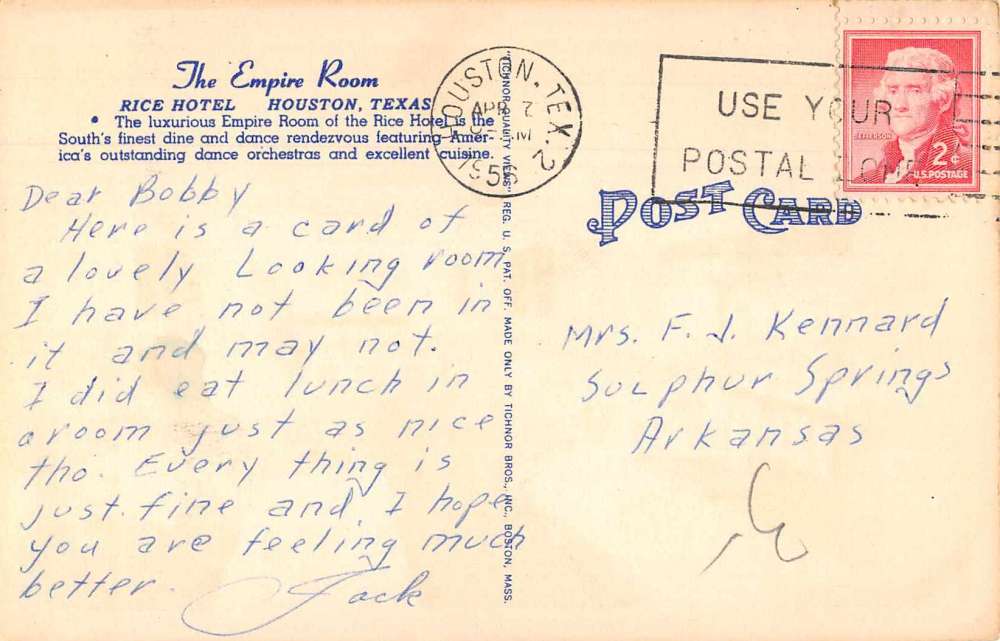 The Empire Room
RICE HOTEL HOUSTON, TEXAS
• The luxurious Empire Room of the Rice Hotel is the
South's finest dine and dance rendezvous featuring Amer-
ica's outstanding dance orchestras and excellent cuisine.
Dear Bobby
Here is a card of
a lovely Looking room
I have not been in
it and may not.
I did eat lunch in
a room just as nice
tho. Every thing is
just fine and I hope
you are feeling much
better.
Jack
"TICHNOR QUALITY VIEWS" REG. U. S. PAT. OFF. MADE ONLY BY TICHNOR BROS., INC., BOSTON, MASS.
HOUSTON, TEX. 2
APR 7
M
1956
USE YOUR
POSTAL
JEFFERSON
2¢
U.S. POSTAGE
POST CARD
Mrs. F. J. Kennard
Sulphur Springs
Arkansas